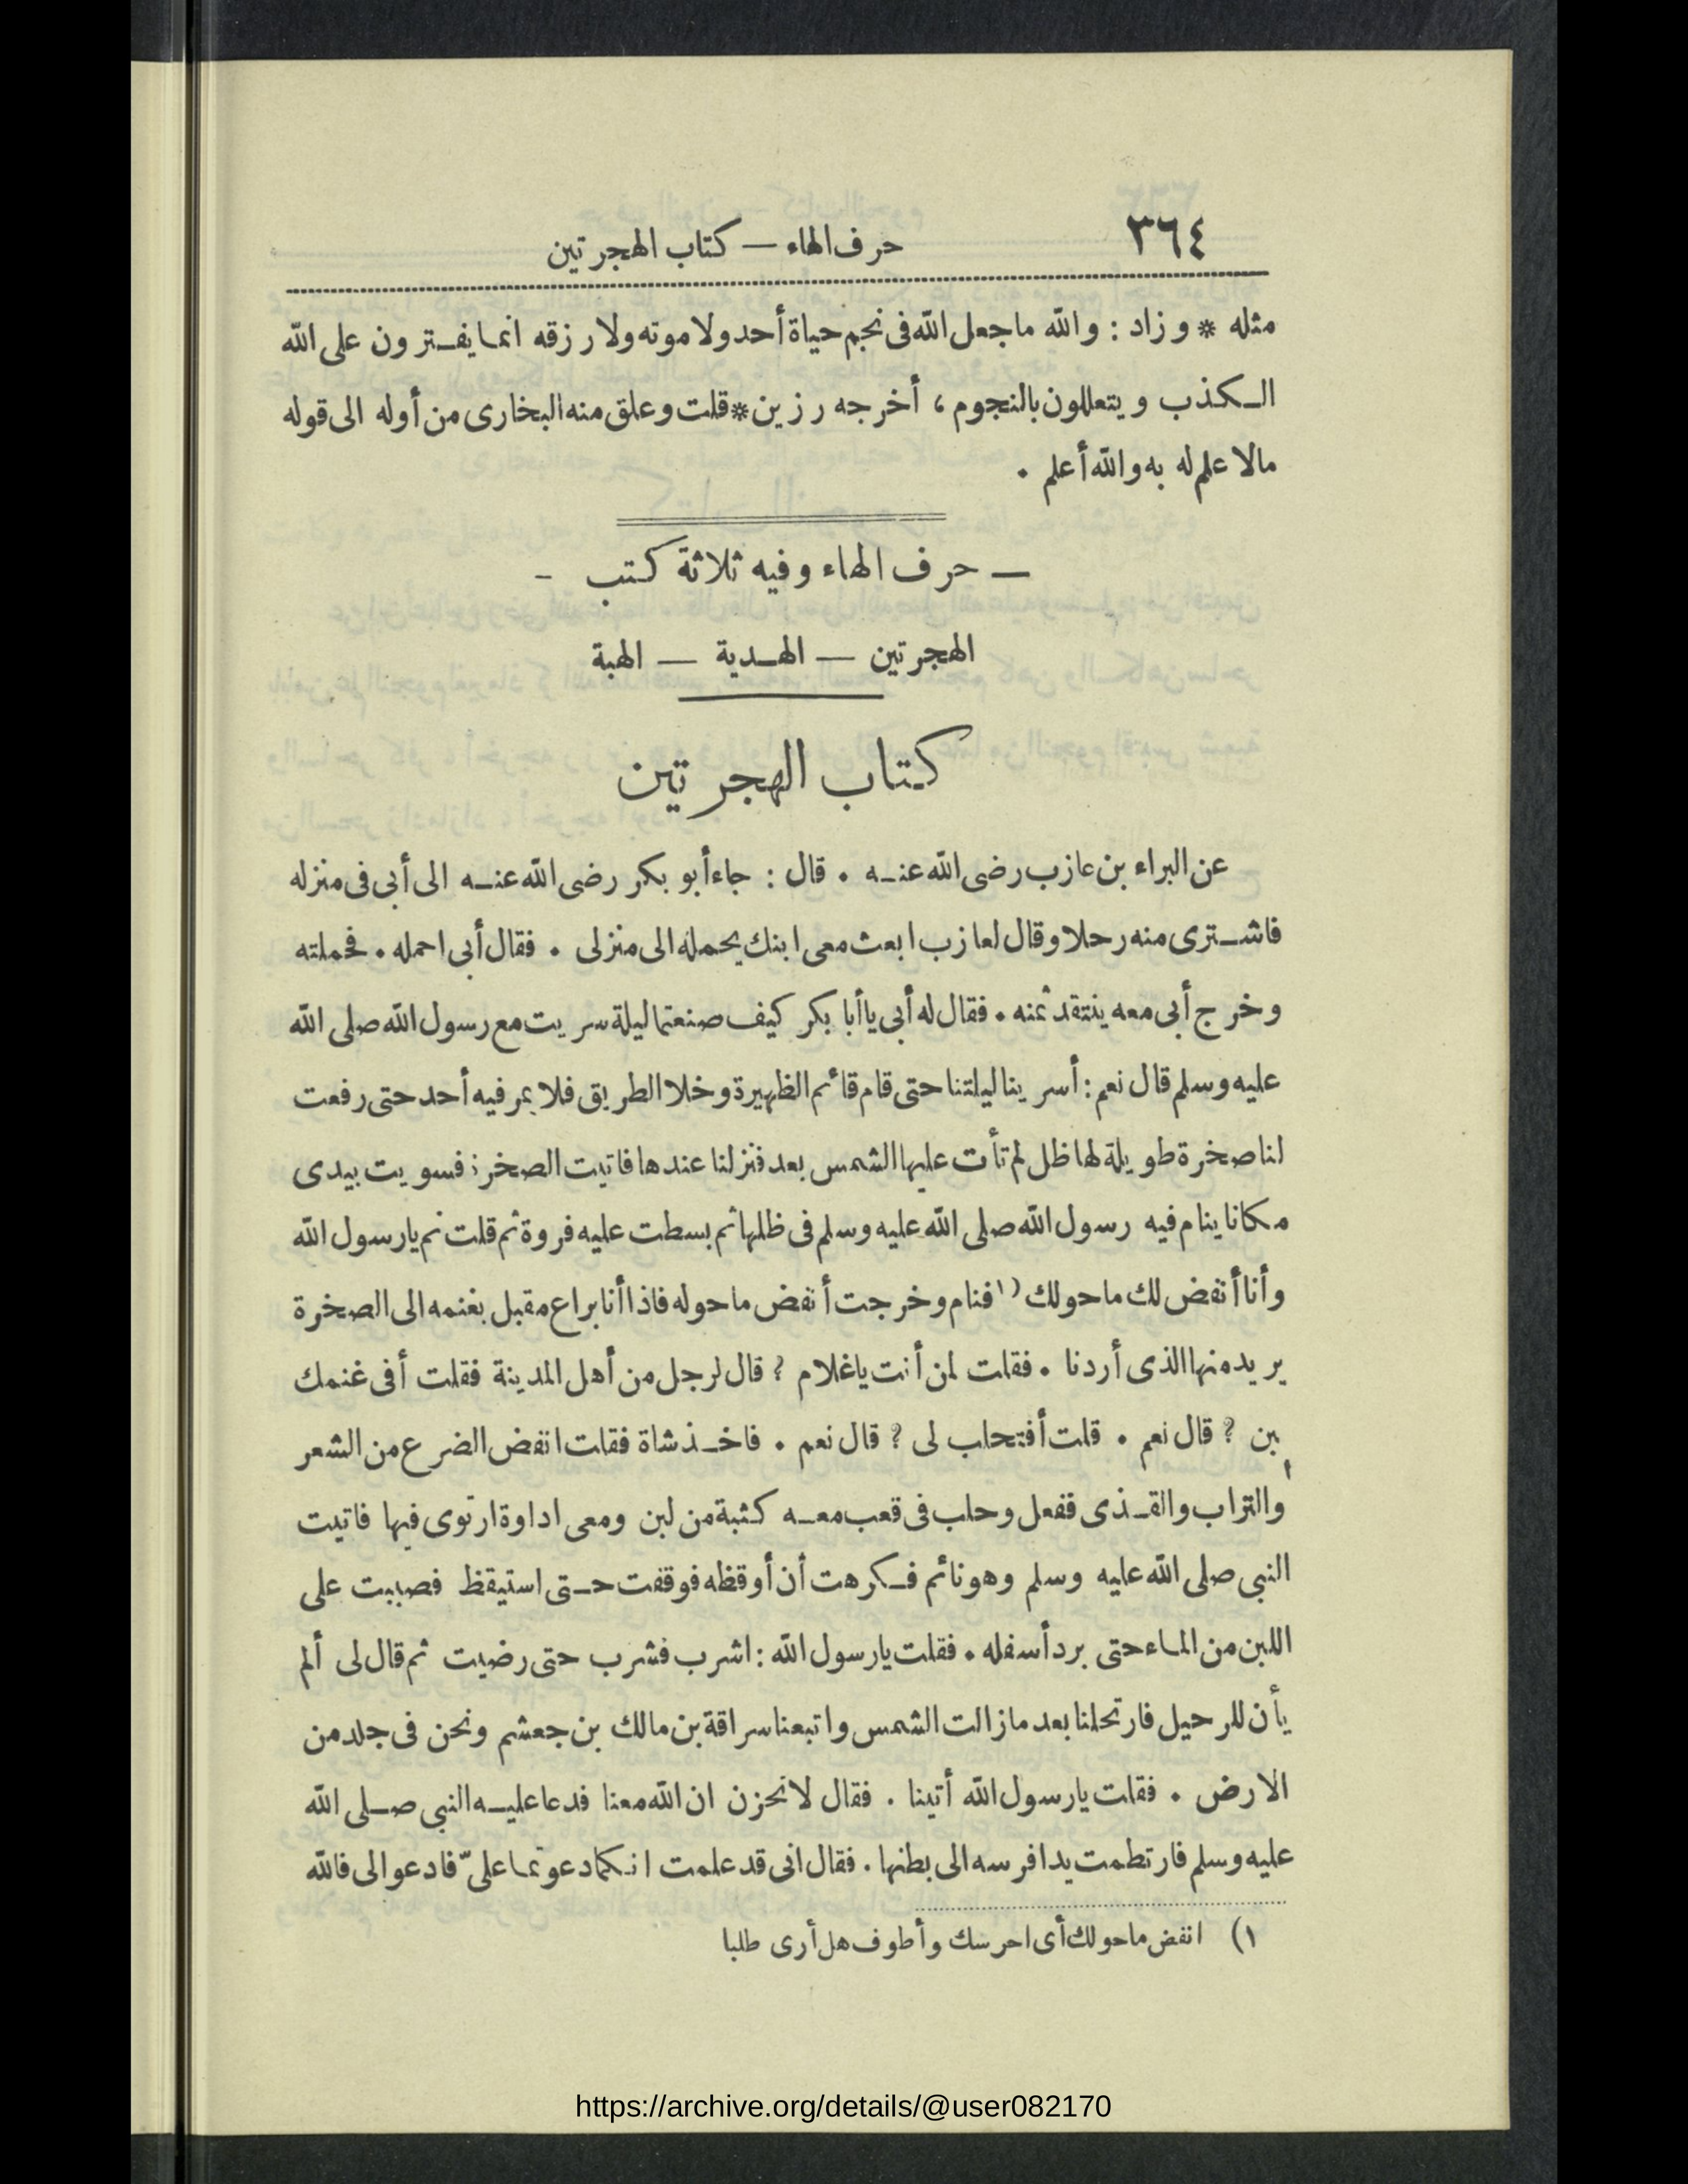 ٣٦٤
حرف الهاء — كتاب الهجرتين
مثله * وزاد : والله ماجعل الله فى نجم حياة أحد ولا موته ولا رزقه انما يفترون على الله
الكذب ويتعللون بالنجوم ، أخرجه رزين * قلت وعلق منه البخارى من أوله الى قوله
مالا علم له به والله أعلم .
— حرف الهاء وفيه ثلاثة كتب -
الهجرتين — الهدية — الهبة
كتاب الهجرتين
عن البراء بن عازب رضى الله عنه . قال : جاء أبو بكر رضى الله عنه الى أبى فى منزله
فاشترى منه رحلا وقال لعازب ابعث معى ابنك يحمله الى منزلى . فقال أبى احمله . فحملته
وخرج أبى معه ينتقد ثمنه . فقال له أبى ياأبا بكر كيف صنعتما ليلة سريت مع رسول الله صلى الله
عليه وسلم قال نعم : أسرينا ليلتنا حتى قام قائم الظهيرة وخلا الطريق فلا يمر فيه أحد حتى رفعت
لنا صخرة طويلة لها ظل لم تأت عليها الشمس بعد فنزلنا عندها فاتيت الصخرة فسويت بيدى
مكانا ينام فيه رسول الله صلى الله عليه وسلم فى ظلها ثم بسطت عليه فروة ثم قلت نم يارسول الله
وأنا أنفض لك ماحولك (١ فنام وخرجت أنفض ماحوله فاذا أنا براع مقبل بغنمه الى الصخرة
يريد منها الذى أردنا . فقلت لمن أنت ياغلام ؟ قال لرجل من أهل المدينة فقلت أفى غنمك
لبن ؟ قال نعم . قلت أفتحلب لى ؟ قال نعم . فاخذ شاة فقلت انفض الضرع من الشعر
والتراب والقذى ففعل وحلب فى قعب معه كثبة من لبن ومعى اداوة ارتوى فيها فاتيت
النبى صلى الله عليه وسلم وهو نائم فكرهت أن أوقظه فوقفت حتى استيقظ فصببت على
اللبن من الماء حتى برد أسفله . فقلت يارسول الله : اشرب فشرب حتى رضيت ثم قال لى ألم
يأن للرحيل فارتحلنا بعد مازالت الشمس واتبعنا سراقة بن مالك بن جعشم ونحن فى جلد من
الارض . فقلت يارسول الله أتينا . فقال لاتحزن ان الله معنا فدعا عليه النبى صلى الله
عليه وسلم فارتطمت يدا فرسه الى بطنها . فقال انى قد علمت انكما دعوتما علىّ فادعوا لى فالله
١) انفض ماحولك أى احرسك وأطوف هل أرى طلبا
https://archive.org/details/@user082170